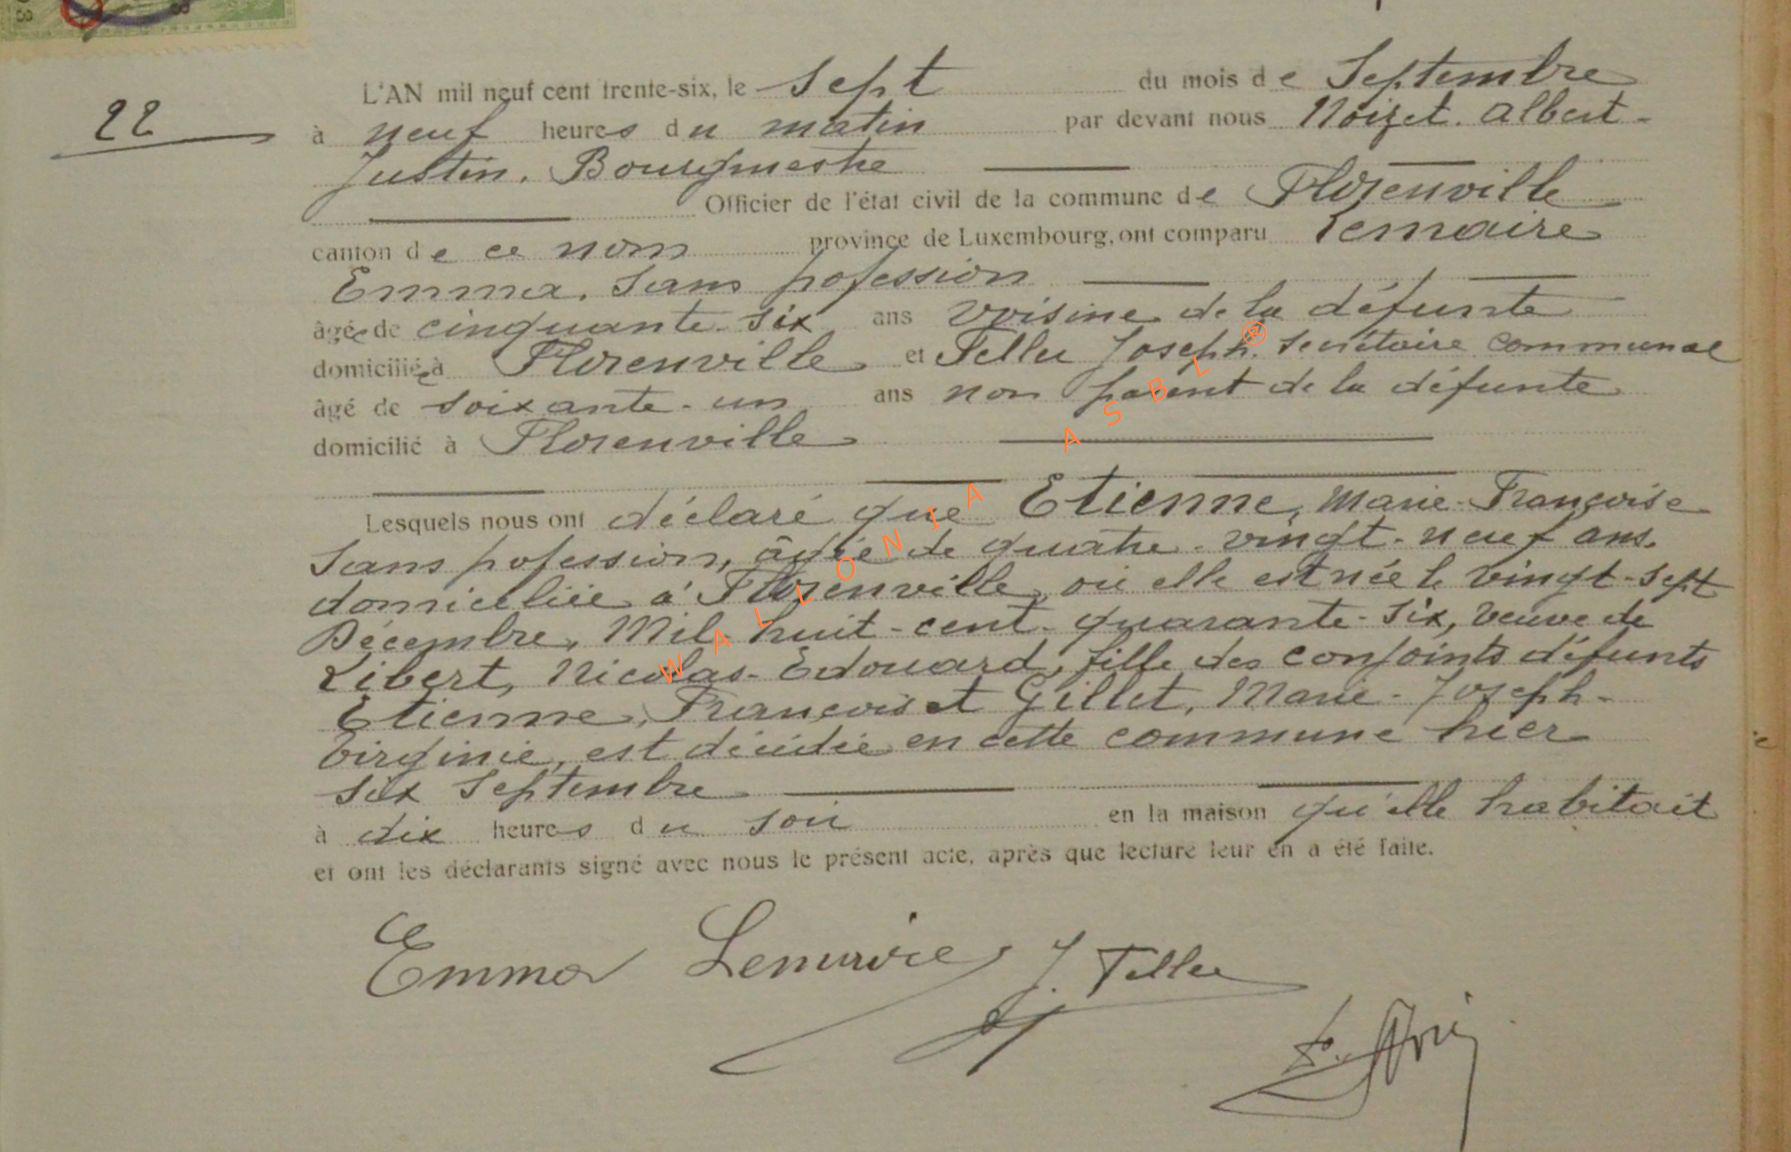 L'AN mil neuf cent trente-six, le sept du mois de Septembre
22
à neuf heures du matin par devant nous Noizet. Albert-
Justin. Bourgmestre
Officier de l'état civil de la commune de Florenville
canton de ce nom province de Luxembourg, ont comparu Lemaire
Emma. Sans pofession
âgée de cinquante-six ans voisine de la défunte
domiciliée à Florenville et Feller Joseph. Secrétaire communal
âgé de soixante-un ans non parent de la défunte
domicilié à Florenville
Lesquels nous ont déclaré que Etienne, Marie-Françoise
Sans pofession, âgée de quatre-vingt-neuf ans,
domiciliée à Florenville, où elle est née le vingt-sept
Décembre, Mil-huit-cent-quarante-six, veuve de
Libert, Nicolas-Edouard, fille des conjoints défunts
Etienne, François et Gillet, Marie-Joseph-
Virginie, est décédée en cette commune hier
six Septembre
à dix heures du soir en la maison qu'elle habitait
et ont les déclarants signé avec nous le présent acte, après que lecture leur en a été faite.
Emma Lemaire J. Feller
WALLONIA ASBL ®